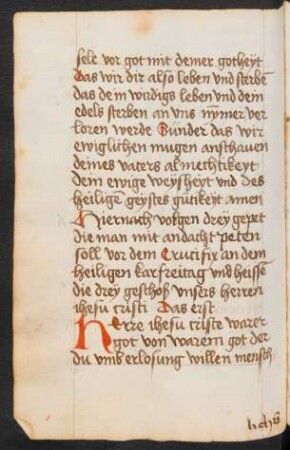 sele vor got mit deiner gotheyt
Das wir dir also leben und sterbē
das dein wirdigs leben und dein
edels sterben an uns nȳmer ver
loren werde Sunder das wir
ewiglichen mugen anschauen
deines vaters almechtikeyt
dein ewige weysheyt und des
heiligē geystes gütikeyt amen
Hiernach volgen drey gepet
die man mit andacht peten
soll vor dem Crucifix an dem
heiligen karfreitag und heissē
die drey geschoß unsers herren
ihesu cristi Das erst
Herre ihesu criste warer
got von warem got der
du umb erlosung willen mensch
lichs